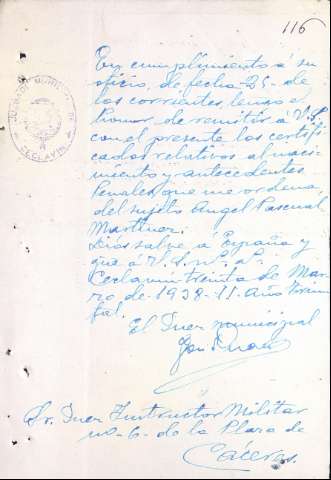 116
JUZGADO MUNICIPAL DE
CECLAVIN
En cumplimiento á su
oficio, de fecha 25 de
los corrientes, tengo el
honor, de remitir á V.S.
con el presente los certifi
cados relativos al naci
miento y antecedentes
Penales, que me ordena,
del sujeto Angel Pascual
Martinez.
Dios salve a España y
que á V.S. m. a.
Ceclavin treinta de Mar
zo de 1938-II Año Triun
fal.
El Juez municipal
Sr. Juez Instructor Militar
no-6-de la Plaza de
Cáceres.